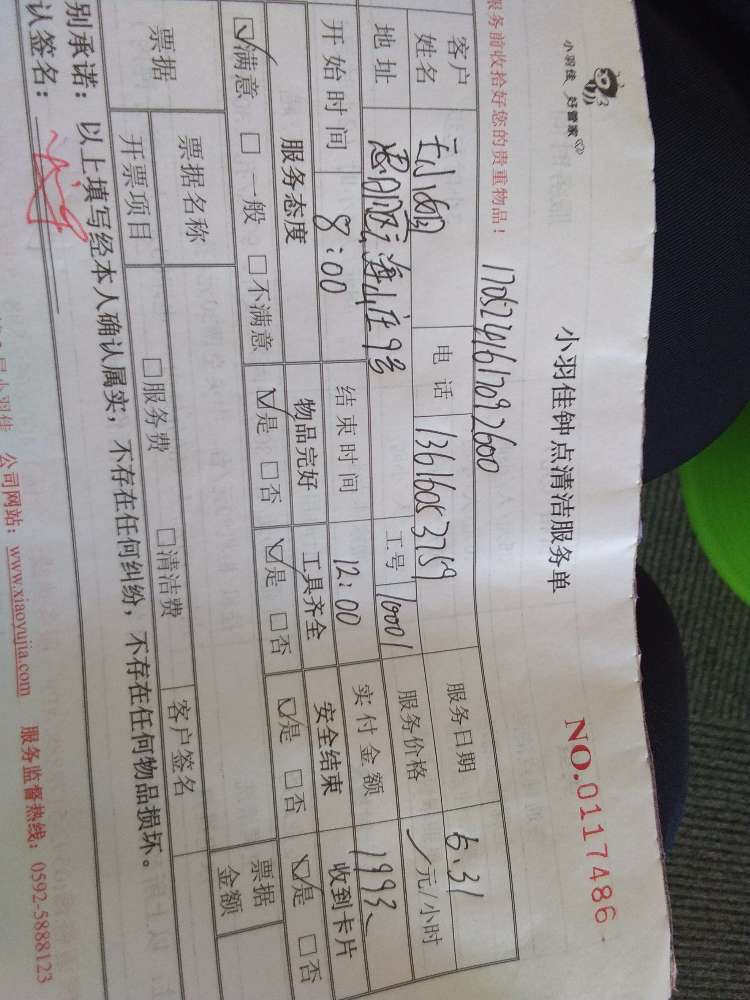 小羽佳 好管家
小羽佳钟点清洁服务单
NO.0117486
服务前收拾好您的贵重物品！
1705241617092600
客户姓名 电话 13616053759 服务日期 5.31
地址 海山庄9号 工号 10001 服务价格 元/小时
开始时间 8:00 结束时间 12:00 实付金额 1993
服务态度 物品完好 工具齐全 安全结束 收到卡片
☑满意 □一般 □不满意 ☑是 □否 ☑是 □否 ☑是 □否 ☑是 □否
票据 票据名称 票据金额
开票项目 □服务费 □清洁费 客户签名
别承诺：以上填写经本人确认属实，不存在任何纠纷，不存在任何物品损坏。
认签名：
小羽佳 公司网站：www.xiaoyujia.com 服务监督热线：0592-5888123